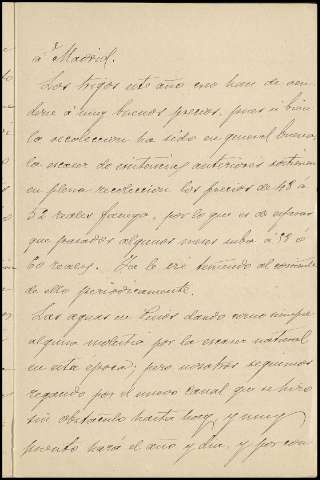 á Madrid.
Los trigos este año creo han de ven
derse á muy buenos precios, pues si bien
la recoleccion ha sido en general buena
la escasez de existencias anteriores sostienen
en plena recoleccion los precios de 48 á
52 reales fanega, por lo que es de esperar
que pasados algunos meses suba á 55 ó
60 reales. Ya le iré teniendo al corriente
de ello periodicamente.
Las aguas en dando como siempre
alguna molestia por la escasez natural
en esta época; pero nosotros seguimos
regando por el nuevo canal que se hizo
sin obstáculo hasta hoy, y muy
pronto hará el año y dia, y por con